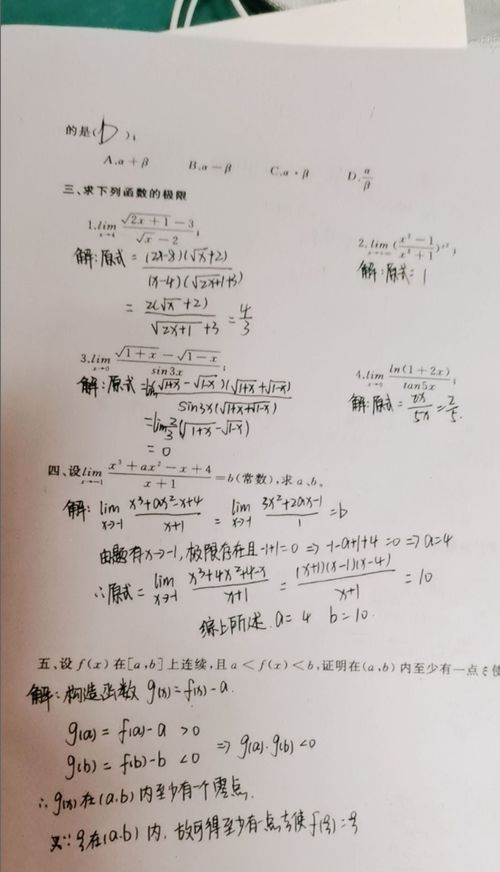 的是(D);
A.α+β B.α-β C.α·β D.α/β
三、求下列函数的极限
1.lim x→4 (√(2x+1)-3)/(√x-2);
2.lim x→∞ ((x²-1)/(x²+1))^x²;
解:原式=((2x-8)(√x+2))/((x-4)(√(2x+1)+3))
解:原式=1
=(2(√x+2))/(√(2x+1)+3)=4/3
3.lim x→0 (√(1+x)-√(1-x))/sin3x;
4.lim x→0 ln(1+2x)/tan5x;
解:原式=lim (√(1+x)-√(1-x))(√(1+x)+√(1-x))/(sin3x(√(1+x)+√(1-x)))
解:原式=2x/5x=2/5.
=lim 2/3(√(1+x)-√(1-x))
=0
四、设lim x→-1 (x³+ax²-x+4)/(x+1)=b(常数),求a、b。
解:lim x→-1 (x³+ax²-x+4)/(x+1)=lim x→-1 (3x²+2ax-1)/1=b
由题有x→-1,极限存在且-1+1=0⇒-1-a+1+4=0⇒a=4
∴原式=lim x→-1 (x³+4x²+4-x)/(x+1)=((x+1)(x-1)(x-4))/(x+1)=10
综上所述.a=4 b=10.
五、设f(x)在[a,b]上连续,且a<f(x)<b,证明在(a,b)内至少有一点ξ使
解:构造函数g(x)=f(x)-a.
g(a)=f(a)-a>0
g(b)=f(b)-b<0⇒g(a)·g(b)<0
∴g(x)在(a.b)内至少有一个零点.
又∵ξ在(a.b)内,故可得至少有一点ξ使f(ξ)=ξ